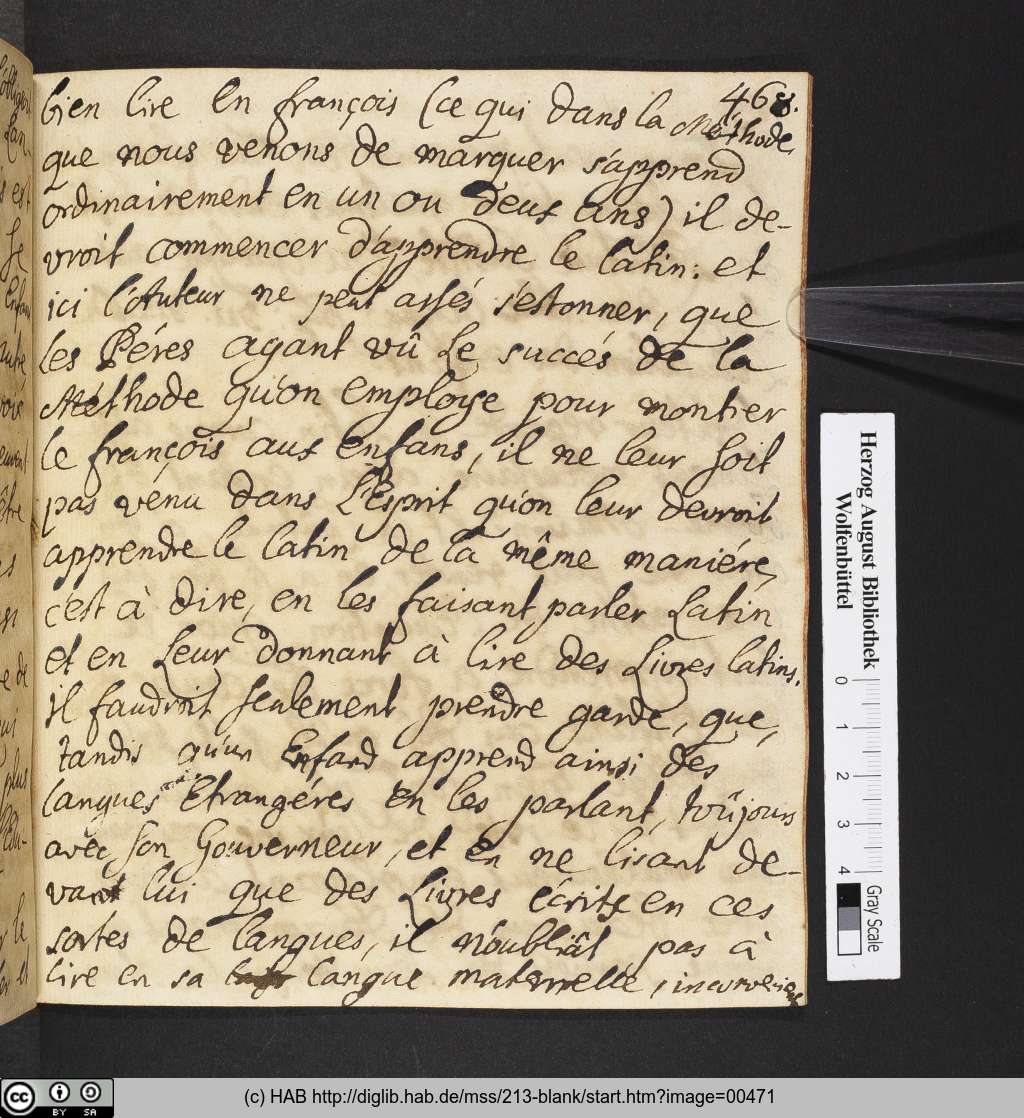 468.
bien lire en françois (ce qui dans la Méthode,
que nous venons de marquer s'apprend
ordinairement en un ou deux ans) il de-
vroit commencer d'apprendre le latin: et
ici l'Auteur ne peut assés s'estonner, que
les Péres ayant vû le succés de la
Méthode qu'on employe pour montrer
le françois aux enfans, il ne leur soit
pas venu dans l'Esprit qu'on leur devroit
apprendre le latin de la même maniére,
c'est à dire, en les faisant parler Latin
et en Leur donnant à lire des Livres latins.
il faudroit seulement prendre garde, que,
tandis qu'un Enfant apprend ainsi des
Langues Etrangéres en les parlant, toûjours
avec son Gouverneur, et en ne lisant de-
vant lui que des Livres écrits en ces
sortes de langues, il n'oubliât pas à
lire en sa Langue maternelle,
Herzog August Bibliothek
Wolfenbüttel
0 1 2 3 4
Gray Scale
CC BY SA
(c) HAB http://diglib.hab.de/mss/213-blank/start.htm?image=00471